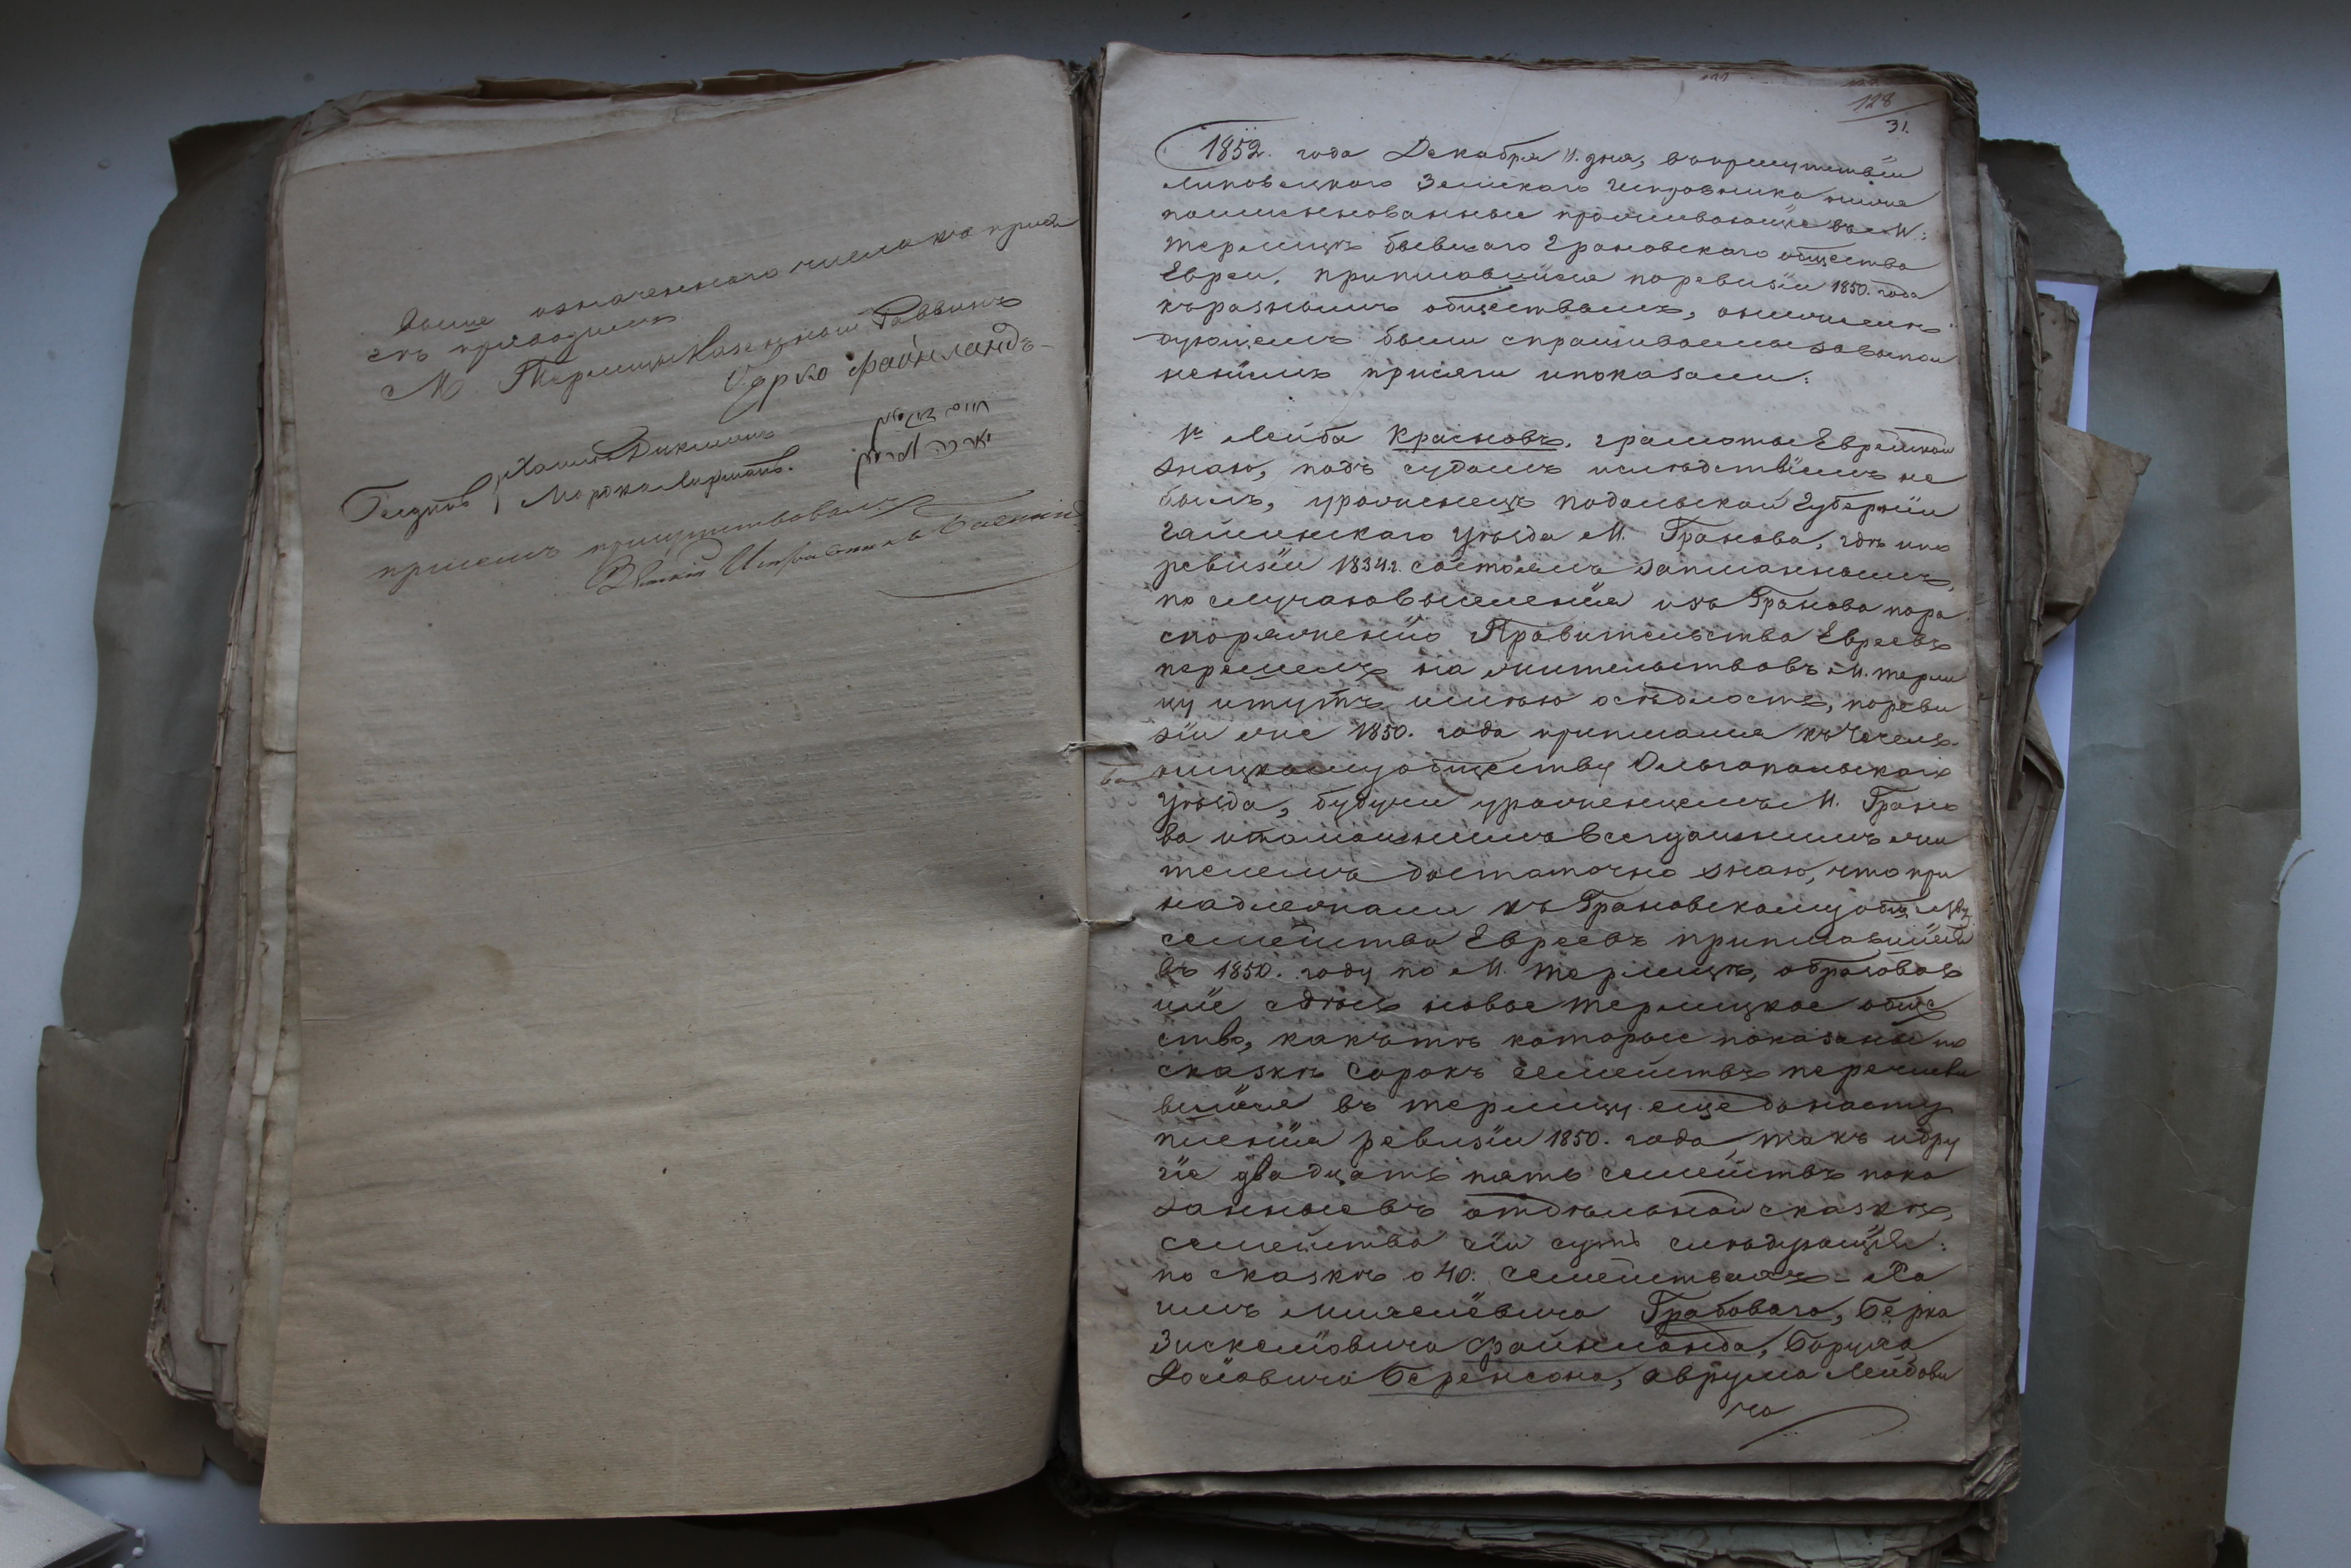 Выше означеннаго числа къ присяг
ѣ приводилъ
М. Терлицы Казенный Раввинъ
Берко Файнландъ
Хаимъ Дикманъ
Мордко
присемъ присутствовалъ
Земскій Исправникъ
128
31.
1852. года Декабря 11. дня, въ присутствіи
Липовецкаго Земскаго Исправника ниже
поименнованные проживающіе въ М:
Терлицѣ бывшаго Грановскаго общества
Евреи, приписавшіися поревизіи 1850. года
къ разнымъ обществамъ,
были спрашиваемы завыпол
неніемъ присяги ипоказали:
1е Лейба Красновъ, грамоты Еврейской
знаю, подъ судомъ ислѣдствіемъ не
былъ, уроженецъ Подольской Губерніи
Гайсинскаго Уѣзда М. Гранова, гдѣ ипо
ревизіи 1834 г. состоялъ записаннымъ,
по случаю выселенія изъ Гранова пора
споряженію Правительства Евреевъ
перешелъ на жительство въ М. Терли
цу итутъ имѣю осѣдлость, пореви
зіи же 1850. года приписался къ Чечель
ницкому обществу Ольгопольскаго
Уѣзда, будучи уроженцемъ М. Грано
ва итамошнимъ всегдашнимъ жи
телемъ достаточно знаю, что при
надлежали къ Грановскому общству
семейства Евреевъ приписавшіеся
въ 1850. году по М. Терлицѣ, образовав
шіе здѣсь новое Терлицкое обще
ство, какъ тѣ которые показаны по
сказкѣ сорокъ семействъ перечисли
вшіися въ Терлицу еще до насту
пленія ревизіи 1850. года, такъ идру
гіе двадцать пять семействъ пока
занные въ отдѣльной сказкѣ,
семейства сіи суть слѣдующія:
по сказкѣ о 40. семействахъ – Ха
имъ Грабоваго, Берка
Зискелiовича Файнланда, Боруха
Іосіовича Беренсона, Аврума Лейбови
ча